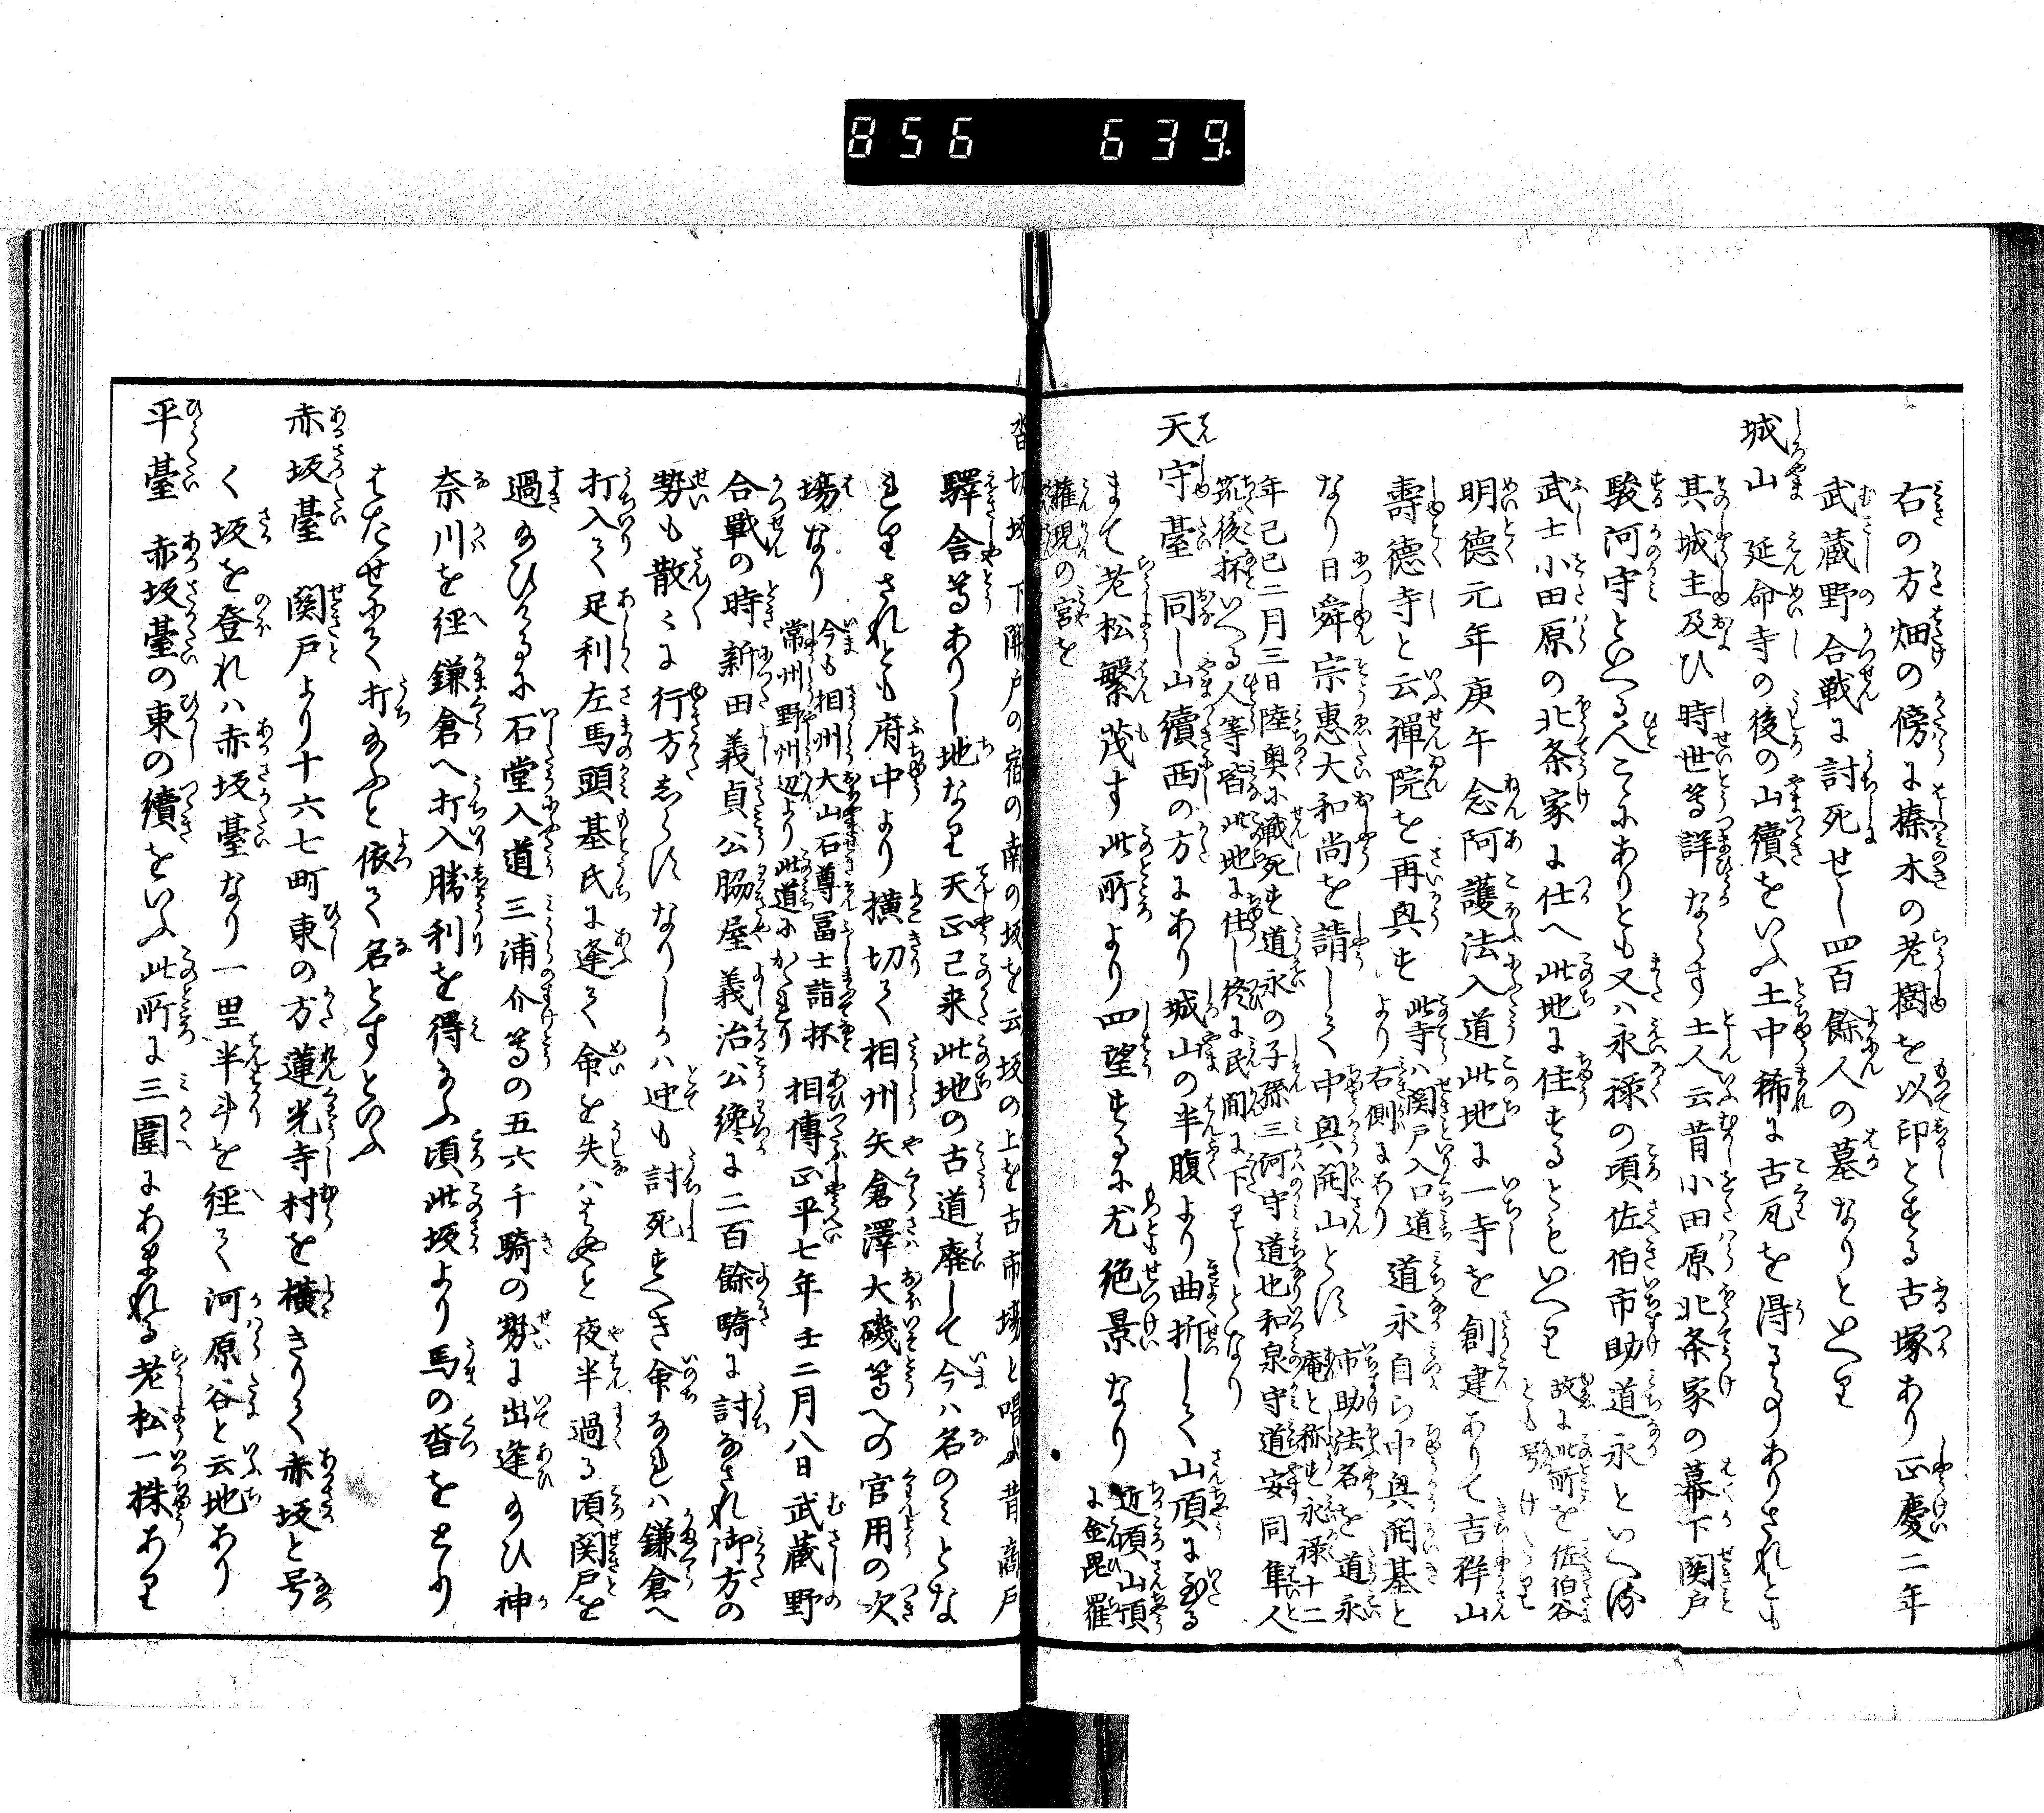 856 639.
右の方畑の傍に榛木の老樹を以印とする古塚あり正慶二年
武蔵野合戦に討死せし四百餘人の墓なりといへり
城山 延命寺の後の山續をいふ土中稀に古瓦を得るゝのありされとも
其城主及ひ時世等詳ならす土人云昔小田原北条家の幕下関戸
駿河守といへる人こゝにありとも又ハ永禄の頃佐伯市助道永といへる
武士小田原の北条家に仕へ此地に住するともいへり 故に此所を佐伯谷
とも号けたり
明德元年庚午念阿護法入道此地に一寺を創建ありて吉祥山
壽德寺と云禅院を再興す 此寺ハ関戸入口道
より右側にあり 道永自ら中興開基と
なり日舜宗惠大和尚を請して中興開山とす 市助法名を道永
庵と称す永禄十二
年己巳二月三日陸奥に戦死す道永の子孫三河守道也和泉守道安同隼人
筑後抔いへる人等皆此地に住し終に民間に下りしとなり
天守臺 同し山續西の方にあり城山の半腹より曲折して山頂に至る
まて老松繁茂す此所より四望するに尤絶景なり 近頃山頂
に金毘羅
權現の宮を
沓切坂 下関戸の宿の南の坂を云坂の上を古市場と唱ふ昔商戸
驛舎等ありし地なり天正己来此地の古道廃して今ハ名のミとな
れりされとも府中より横切て相州矢倉澤大磯等への官用の次
場なり 今も相州大山石尊冨士詣抔
常州野州辺より此道にかゝれり 相傳正平七年壬二月八日武蔵野
合戰の時新田義貞公脇屋義治公纔に二百餘騎に討なされ御方の
勢も散々に行方しらすなりしかハ迚も討死すへき命なれハ鎌倉へ
打入て足利左馬頭基氏に逢て命を失ハはやと夜半過る頃関戸を
過給ひけるに石堂入道三浦介等の五六千騎の勢に出逢給ひ神
奈川を經鎌倉へ打入勝利を得給ふ頃此坂より馬の沓をとり
はたせにて打給ふと依て名とすといふ
赤坂臺 関戸より十六七町東の方蓮光寺村を横きりて赤坂と号
く坂を登れハ赤坂臺なり一里半斗を經て河原谷と云地あり
平臺 赤坂臺の東の續をいふ此所に三圍にあまれる老松一株あり